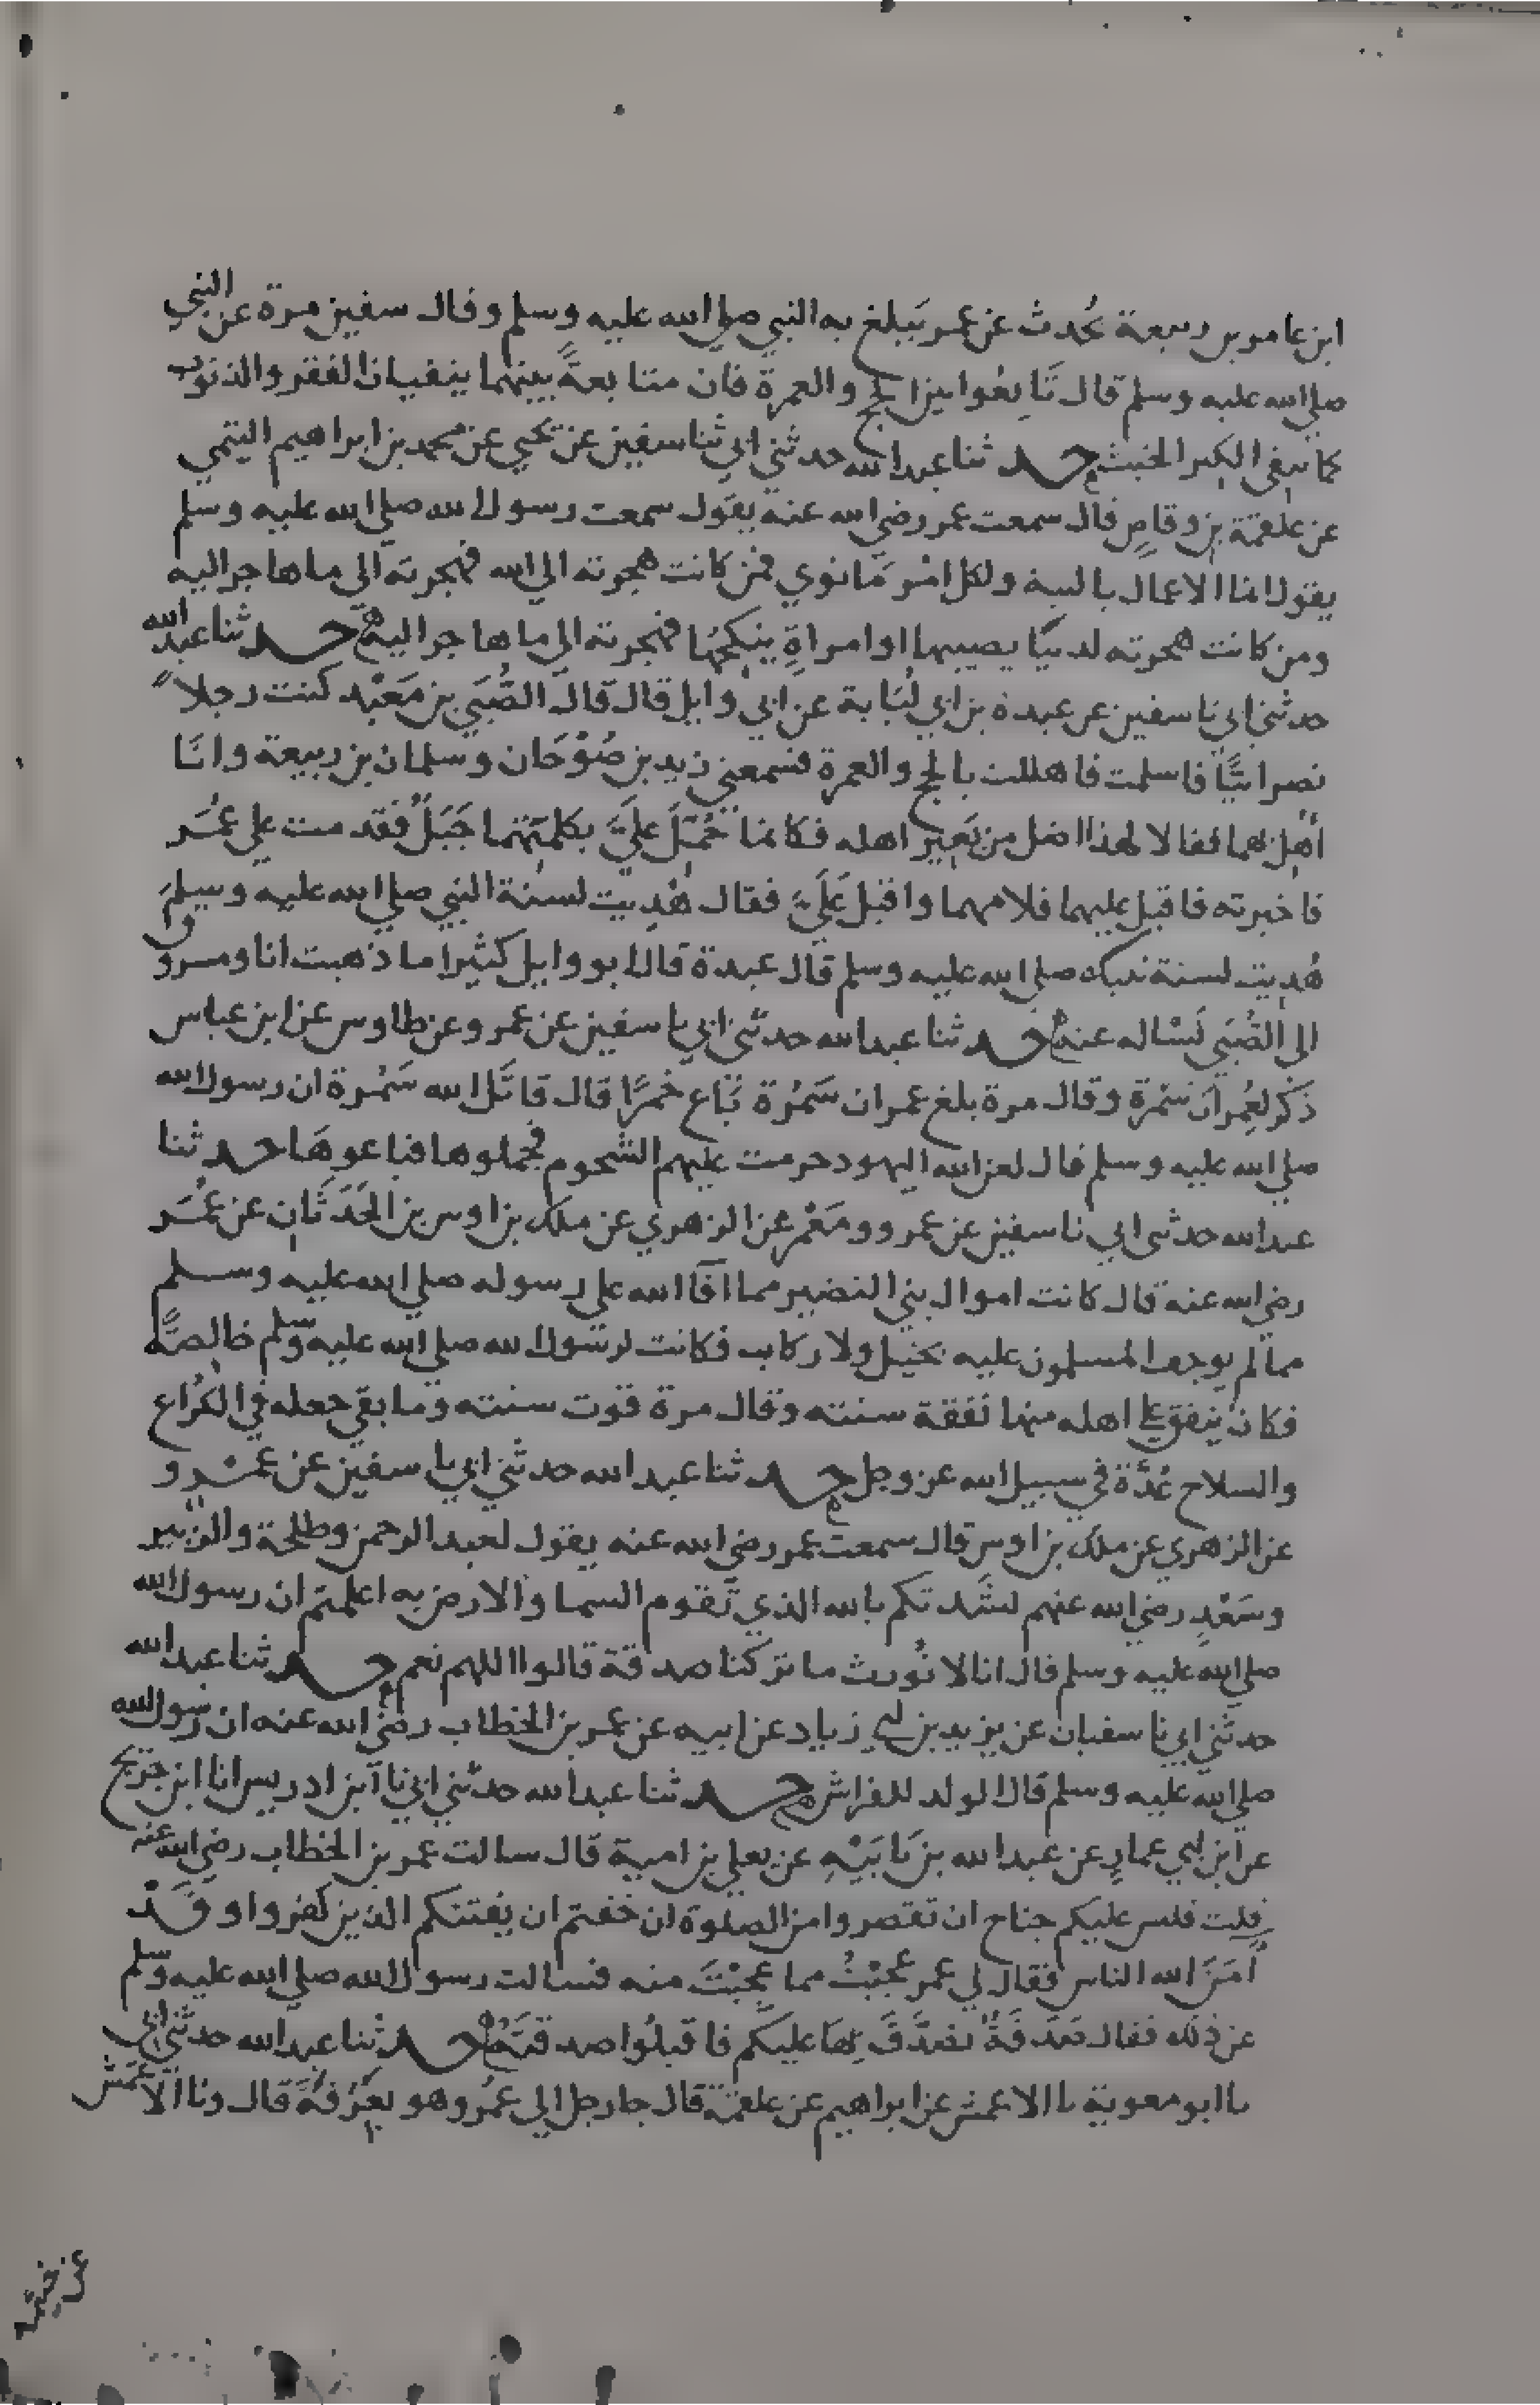 ابن عامر بن ربيعة يُحدث عن عمر يَبلغ به النبي صلى الله عليه وسلم وقال سفين مرة عن النبي
صلى الله عليه وسلم قال تَابِعُوا بين الحج والعمرة فان متابعةً بينهما ينفيان الفقر والذنوب
كما ينفي الكير الخبث حدثنا عبدالله حدثني ابي ثنا سفين عن يحيى عن محمد بن ابراهيم التيمي
عن علقمة بن وقاصٍ قال سمعت عمر رضي الله عنه يقول سمعت رسول الله صلى الله عليه وسلم
يقول انما الاعمال بالنية ولكل امْرِ مَا نوي فمن كانت هجرته الى الله فهجرته الى ما هاجر اليه
ومن كانت هجرته لدنيَا يصيبها او امراةٍ ينكحُهَا فهجرته الى ما هاجر اليه حدثنا عبد الله
حدثني ابي نا سفين عن عبدة بن ابي لُبَابة عن ابي وايل قال قال الصُّبَي بن مَعْبَد كنت رجلاً
نصرانيًّا فاسلمت فاهللت بالحج والعمرة فسمعني زيد بن صُوْحَان وسلمان بن ربيعة وانَا
أُهِل بهما فقالا لهذا اضل من بَعِير اهله فكانما حُمِّلَ عليَّ بكلمتهما جَبَلٌ فقدمت على عُمَر
فاخبرته فاقبل عليهما فلامهما واقبل عَلَيَّ فقال هُدِيت لسنة النبي صلى الله عليه وسلم
هُدِيت لسنة نبيك صلى الله عليه وسلم قال عبدة قال ابو وايل كثيرا ما ذهبت انا ومسروق
الى الصُّبَي نَسْاله عنه حدثنا عبدالله حدثنى ابي نا سفين عن عمرو عن طاوس عن ابن عباس
ذَكَر لعُمر ان سَمُرة وقال مرة بلغ عمر ان سَمُرة بَاع خمرًا قال قاتَل الله سَمُرة ان رسول الله
صلى الله عليه وسلم قال لعن الله اليهود حرمت عليهم الشحوم فجملوها فباعوهَا حدثنا
عبدالله حدثنى ابي نا سفين عن عمرو ومَعْمَر عن الزهري عن ملك بن اوس بن الحَدَثَانِ عن عُمَر
رضي الله عنه قال كانت اموال بني النضير مما افَا الله على رسوله صلى الله عليه وسلم
مما لم يوجف المسلمون عليه بخيل ولا ركاب فكانت لرسول الله صلى الله عليه وسلم خالصةً
فكان يُنفق على اهله منها نفقة سنته وقال مرة قوت سنته وما بقي جعله في الكُراع
والسلاح عُدَّة في سبيل الله عز وجل حدثنا عبدالله حدثني ابي نا سفين عن عمرو
عن الزهري عن ملك بن اوس قال سمعت عمر رضي الله عنه يقول لعبد الرحمن وطلحة والزبير
وسَعْدٍ رضي الله عنهم نشَدتكم بالله الذي تَقوم السما والارض به اعلمتم ان رسول الله
صلى الله عليه وسلم قال انا لا نُورث ما تركنا صدقة قالوا اللهم نعم حدثنا عبدالله
حدثني ابي نا سفيان عن يزيد بن ابي زياد عن ابيه عن عمر بن الخطاب رضي الله عنه ان رسول الله
صلى الله عليه وسلم قال الولد للفراش حدثنا عبدالله حدثني ابي نا ابن ادريس انا ابن جريج
عن ابن ابي عمارٍ عن عبدالله بن بَابَيْهِ عن يعلى بن امية قال سالت عمر بن الخطاب رضي الله عنه
قلت فليس عليكم جناح ان تقصروا من الصلوة ان خفتم ان يفتنكم الذين كفروا وقَدْ
أمَنَ الله الناس فقال لي عمر عَجِبْتُ مما عَجِبْتَ منه فسالت رسول الله صلى الله عليه وسلم
عن ذلك فقال صَدَقَةٌ تصَدَّقَ بِهَا عليكم فاقبلُوا صدقتَهُ حدثنا عبدالله حدثني ابي
نا ابو معوية نا الاعمش عن ابراهيم عن علقمة قال جا رجل الى عمَر وهو بِعَرَفَةَ قال ونا الاعمَش
عن خيثمة